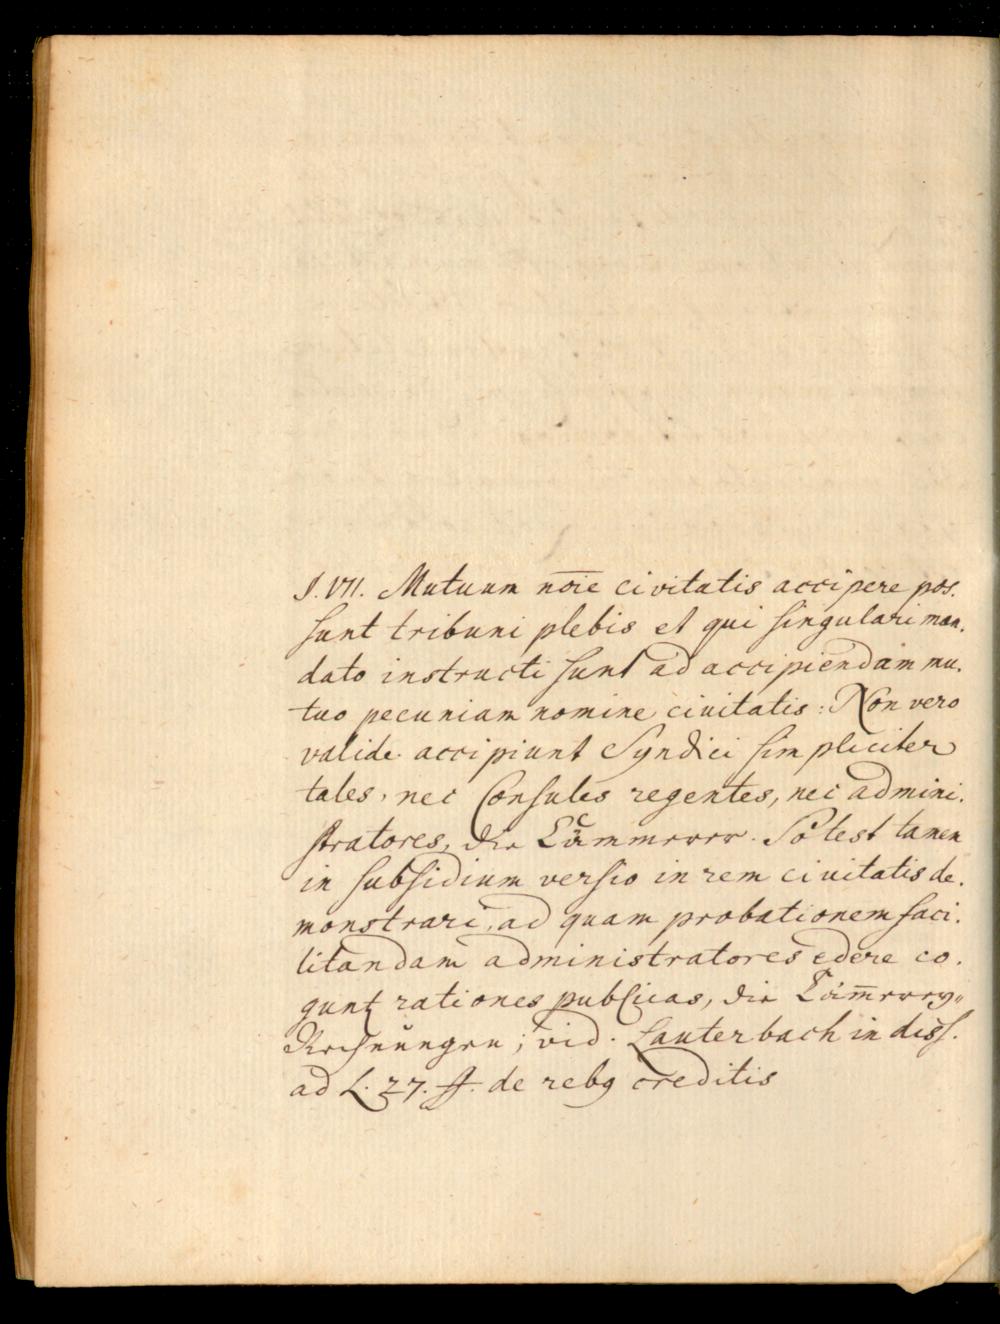 §. VII. Mutuum nōie civitatis accipere pos.
sunt tribuni plebis et qui singulari man.
dato instructi sunt ad accipiendam mu.
tuo pecuniam nomine civitatis: Non vero
valide accipiunt Syndici simpliciter
tales, nec Consules regentes, nec admini.
stratores, die Cämmerer. Potest tamen
in subsidium versio in rem civitatis de.
monstrari, ad quam probationem faci.
litandam administratores edere co.
gunt rationes publicas, die Cäm̄erey-
Rechnungen; vid. Lauterbach in diss.
ad L. 27. ff. de rebg creditis